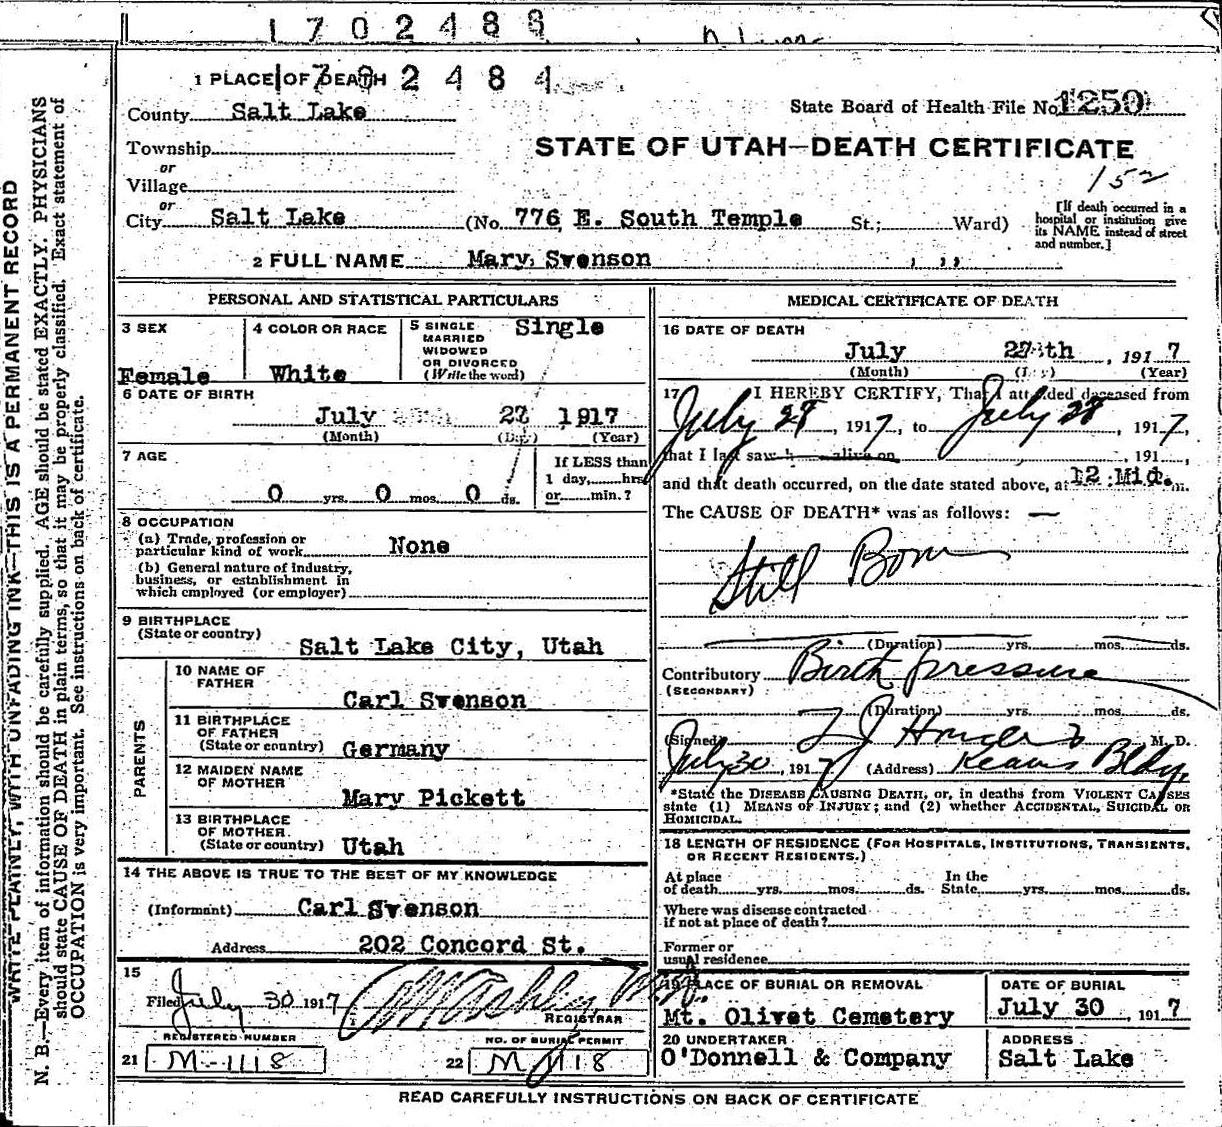 1702488
1 PLACE OF DEATH 1702484
County Salt Lake
State Board of Health File No. 1250
Township
or
Village
or
STATE OF UTAH—DEATH CERTIFICATE
152
City Salt Lake (No. 776 E. South Temple St.; Ward)
[If death occurred in a
hospital or institution give
its NAME instead of street
and number.]
2 FULL NAME Mary Svenson
PERSONAL AND STATISTICAL PARTICULARS
3 SEX
Female
4 COLOR OR RACE
White
5 SINGLE
MARRIED
WIDOWED
OR DIVORCED
(Write the word)
Single
6 DATE OF BIRTH
July 1917
(Month) (Day) (Year)
7 AGE
0 yrs. 0 mos. 0 ds.
If LESS than
1 day, hrs.
or min.?
8 OCCUPATION
(a) Trade, profession or
particular kind of work None
(b) General nature of industry,
business, or establishment in
which employed (or employer)
9 BIRTHPLACE
(State or country)
Salt Lake City, Utah
PARENTS
10 NAME OF
FATHER
Carl Svenson
11 BIRTHPLACE
OF FATHER
(State or country) Germany
12 MAIDEN NAME
OF MOTHER
Mary Pickett
13 BIRTHPLACE
OF MOTHER.
(State or country) Utah
14 THE ABOVE IS TRUE TO THE BEST OF MY KNOWLEDGE
(Informant) Carl Svenson
Address 202 Concord St.
15
Filed July 30 1917
REGISTRAR
REGISTERED NUMBER
21 M-1118
NO. OF BURIAL PERMIT
22 M 1118
MEDICAL CERTIFICATE OF DEATH
16 DATE OF DEATH
July th, 1917
(Month) (Day) (Year)
17 I HEREBY CERTIFY, That I attended deceased from
July 28, 1917, to July 28, 1917,
that I last saw h alive on , 191 ,
and that death occurred, on the date stated above, at 12:Mid. m.
The CAUSE OF DEATH* was as follows:
Still Born
(Duration) yrs. mos. ds.
Contributory Birth pressure
(SECONDARY)
(Duration) yrs. mos. ds.
(Signed) M. D.
July 30, 1917 (Address) Kearns Bldg.
*State the DISEASE CAUSING DEATH, or, in deaths from VIOLENT CAUSES
state (1) MEANS OF INJURY; and (2) whether ACCIDENTAL, SUICIDAL OR
HOMICIDAL.
18 LENGTH OF RESIDENCE (FOR HOSPITALS, INSTITUTIONS, TRANSIENTS,
OR RECENT RESIDENTS.)
At place
of death yrs. mos. ds.
In the
State yrs. mos. ds.
Where was disease contracted
if not at place of death?
Former or
usual residence
19 PLACE OF BURIAL OR REMOVAL
Mt. Olivet Cemetery
DATE OF BURIAL
July 30, 1917
20 UNDERTAKER
O'Donnell & Company
ADDRESS
Salt Lake
READ CAREFULLY INSTRUCTIONS ON BACK OF CERTIFICATE
WRITE PLAINLY, WITH UNFADING INK—THIS IS A PERMANENT RECORD
N. B.—Every item of information should be carefully supplied. AGE should be stated EXACTLY. PHYSICIANS
should state CAUSE OF DEATH in plain terms, so that it may be properly classified. Exact statement of
OCCUPATION is very important. See instructions on back of certificate.